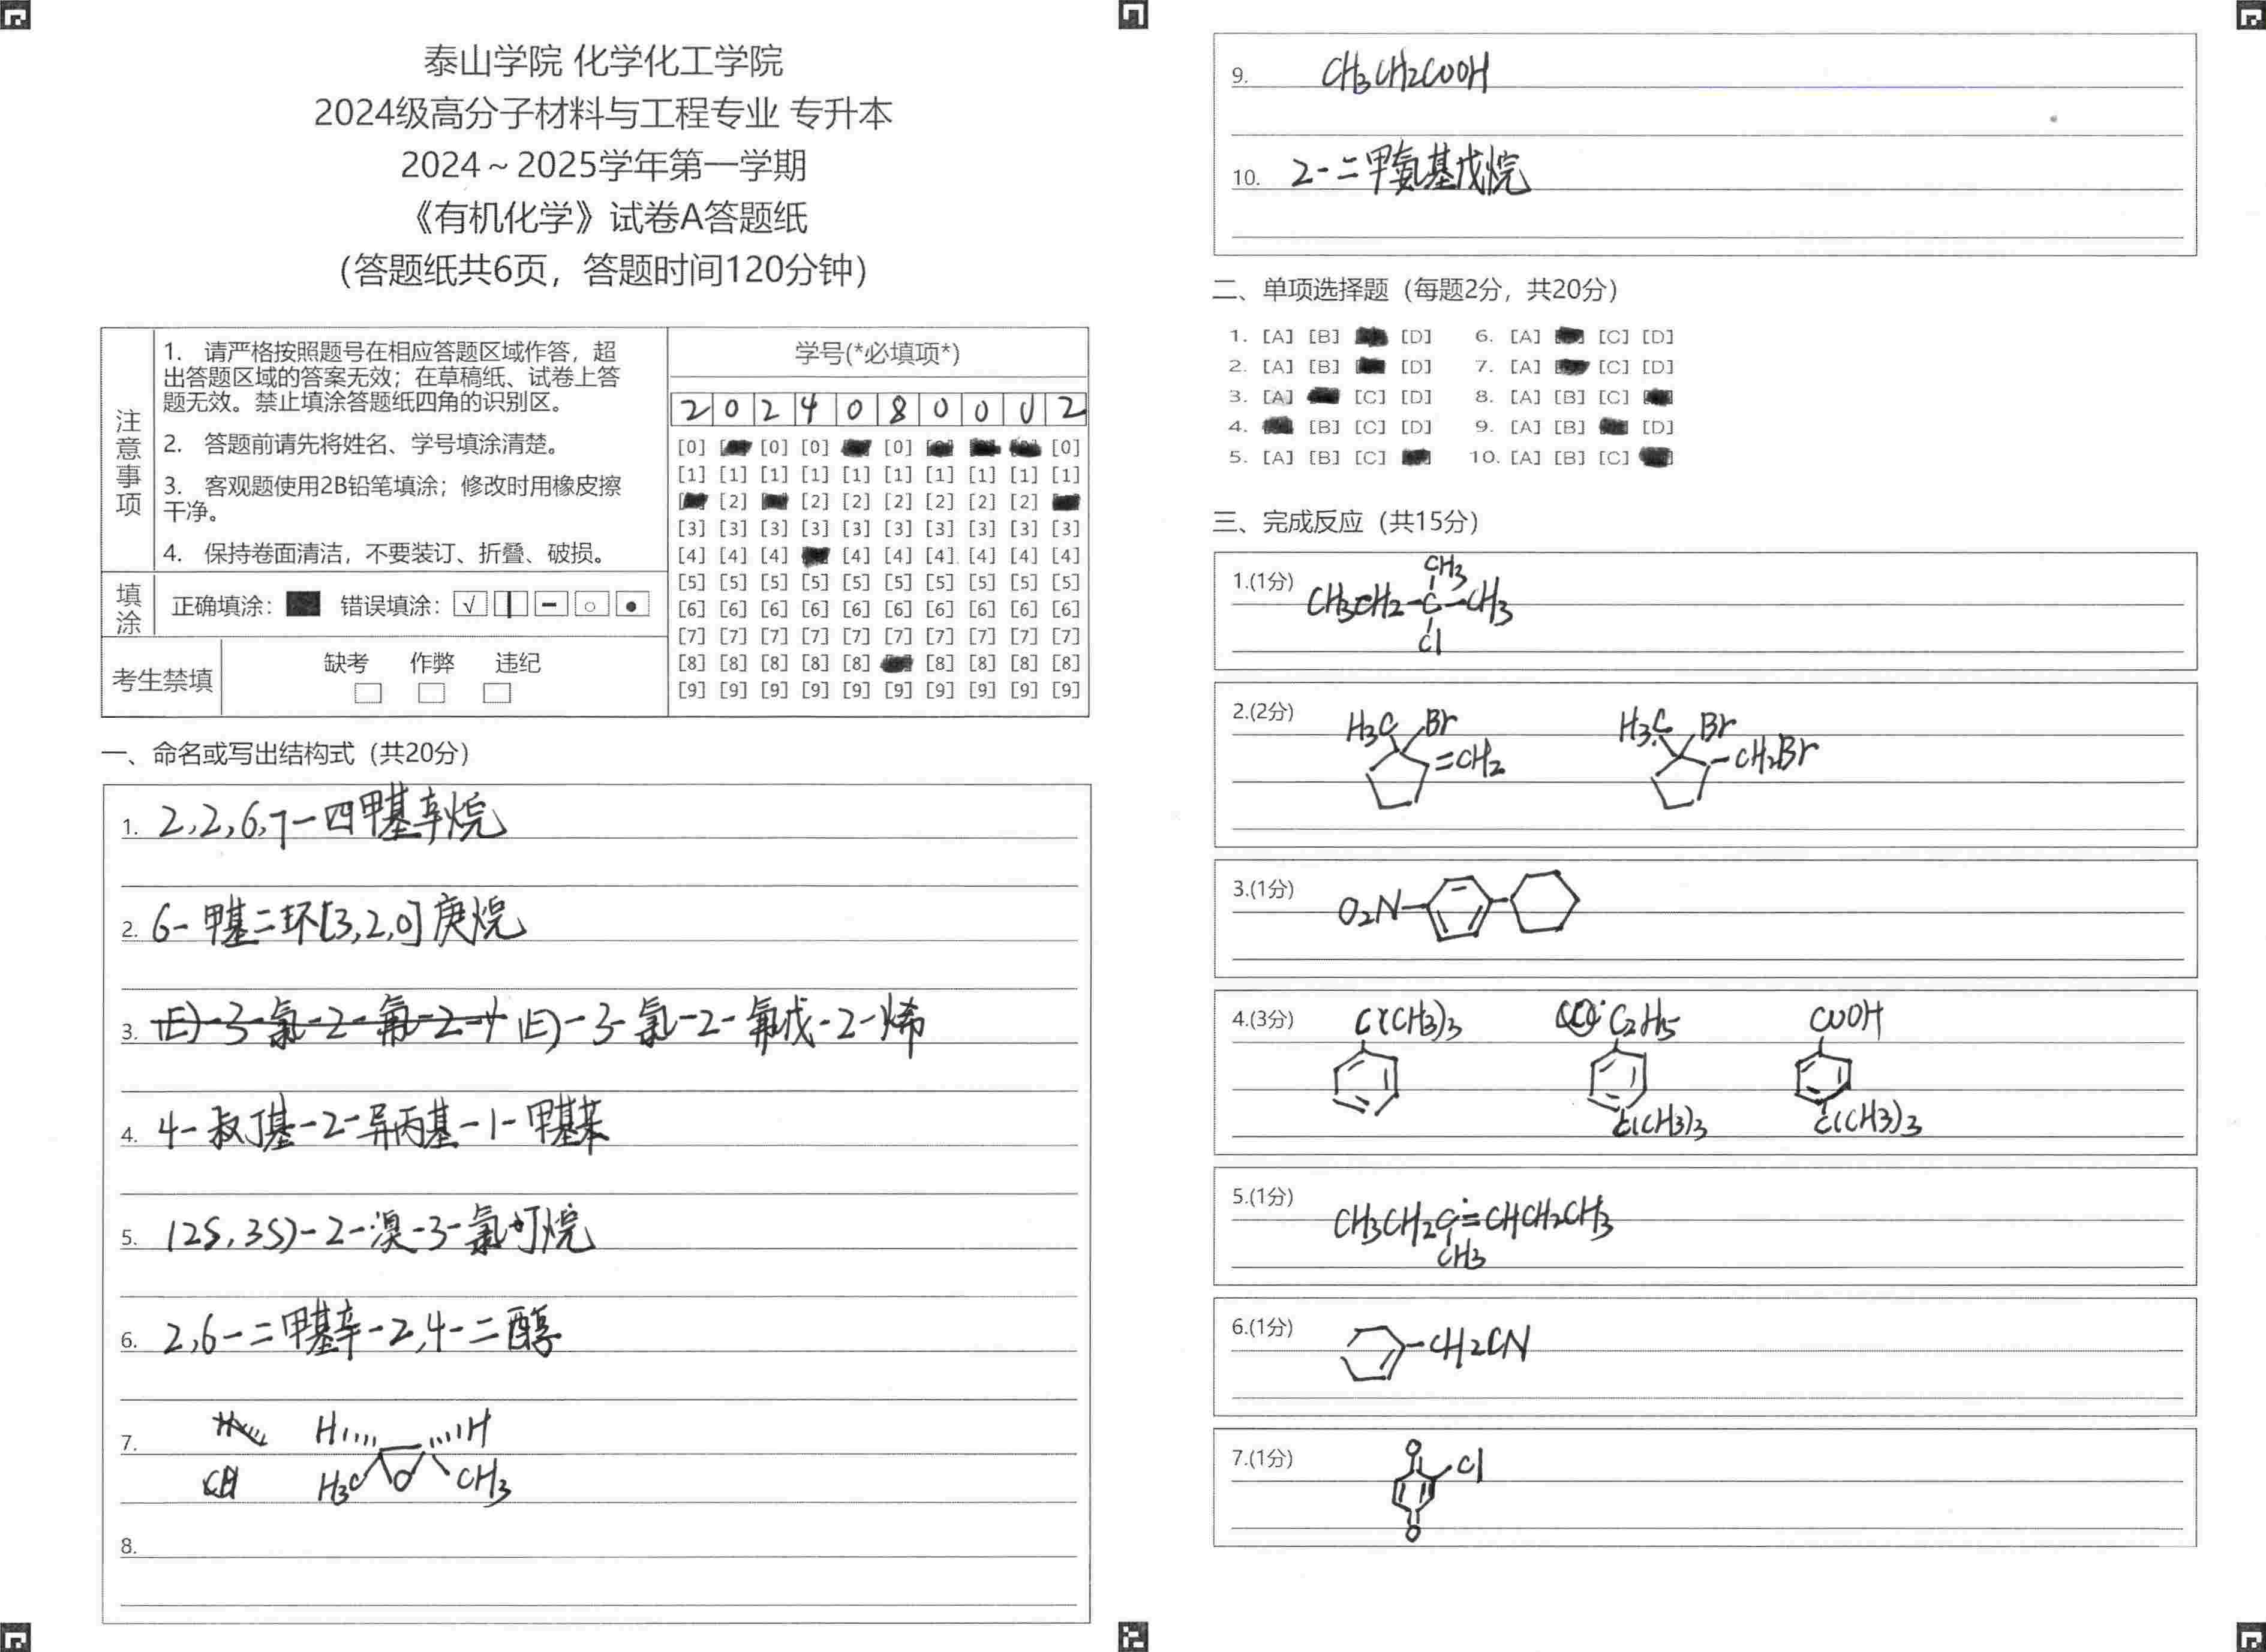 泰山学院 化学化工学院
2024级高分子材料与工程专业 专升本
2024～2025学年第一学期
《有机化学》试卷A答题纸
（答题纸共6页，答题时间120分钟）
注意事项
1. 请严格按照题号在相应答题区域作答，超
出答题区域的答案无效；在草稿纸、试卷上答
题无效。禁止填涂答题纸四角的识别区。
2. 答题前请先将姓名、学号填涂清楚。
3. 客观题使用2B铅笔填涂；修改时用橡皮擦
干净。
4. 保持卷面清洁，不要装订、折叠、破损。
填涂
正确填涂： 错误填涂：
考生禁填
缺考 作弊 违纪
学号(*必填项*)
2 0 2 4 0 8 0 0 0 2
[0] [0] [0] [0] [0]
[1] [1] [1] [1] [1] [1] [1] [1] [1] [1]
[2] [2] [2] [2] [2] [2] [2]
[3] [3] [3] [3] [3] [3] [3] [3] [3] [3]
[4] [4] [4] [4] [4] [4] [4] [4] [4]
[5] [5] [5] [5] [5] [5] [5] [5] [5] [5]
[6] [6] [6] [6] [6] [6] [6] [6] [6] [6]
[7] [7] [7] [7] [7] [7] [7] [7] [7] [7]
[8] [8] [8] [8] [8] [8] [8] [8] [8]
[9] [9] [9] [9] [9] [9] [9] [9] [9] [9]
一、命名或写出结构式（共20分）
1. 2,2,6,7-四甲基辛烷
2. 6-甲基二环[3,2,0]庚烷
3. (E)-3-氯-2-氟-2- (E)-3-氯-2-氟戊-2-烯
4. 4-叔丁基-2-异丙基-1-甲基苯
5. (2S,3S)-2-溴-3-氯丁烷
6. 2,6-二甲基辛-2,4-二醇
7. H H
H3C O CH3
8.
9. CH3CH2COOH
10. 2-二甲氨基戊烷
二、单项选择题（每题2分，共20分）
1. [A] [B] [D] 6. [A] [C] [D]
2. [A] [B] [D] 7. [A] [C] [D]
3. [A] [C] [D] 8. [A] [B] [C]
4. [B] [C] [D] 9. [A] [B] [D]
5. [A] [B] [C] 10. [A] [B] [C]
三、完成反应（共15分）
1.(1分)
CH3
CH3CH2-C-CH3
Cl
2.(2分)
H3C Br H3C Br
=CH2 -CH2Br
3.(1分)
O2N
4.(3分)
C(CH3)3 C2H5 COOH
C(CH3)3 C(CH3)3
5.(1分)
CH3CH2C=CHCH2CH3
CH3
6.(1分)
-CH2CN
7.(1分)
O Cl
O